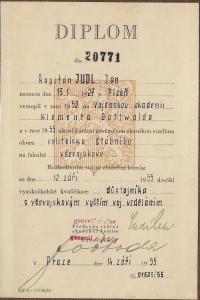 DIPLOM
čís. 20771
kapitán JUDL Jan
narozen dne 15./1. 1927 v Plzni
vstoupil v roce 1952 na Vojenskou akademii
Klementa Gottwalda
a v roce 1955 ukončil státní závěrečnou zkouškou studium
oboru velitelsko štábního
na fakultě vševojskové
Rozhodnutím státní zkušební komise
ze dne 12. září 1955 dosáhl
vysokoškolské kvalifikace důstojníka
s vševojskovým vyšším voj. vzděláním
generálmajor
Předseda státní
zkušební komise
V Praze dne 14. září 1955